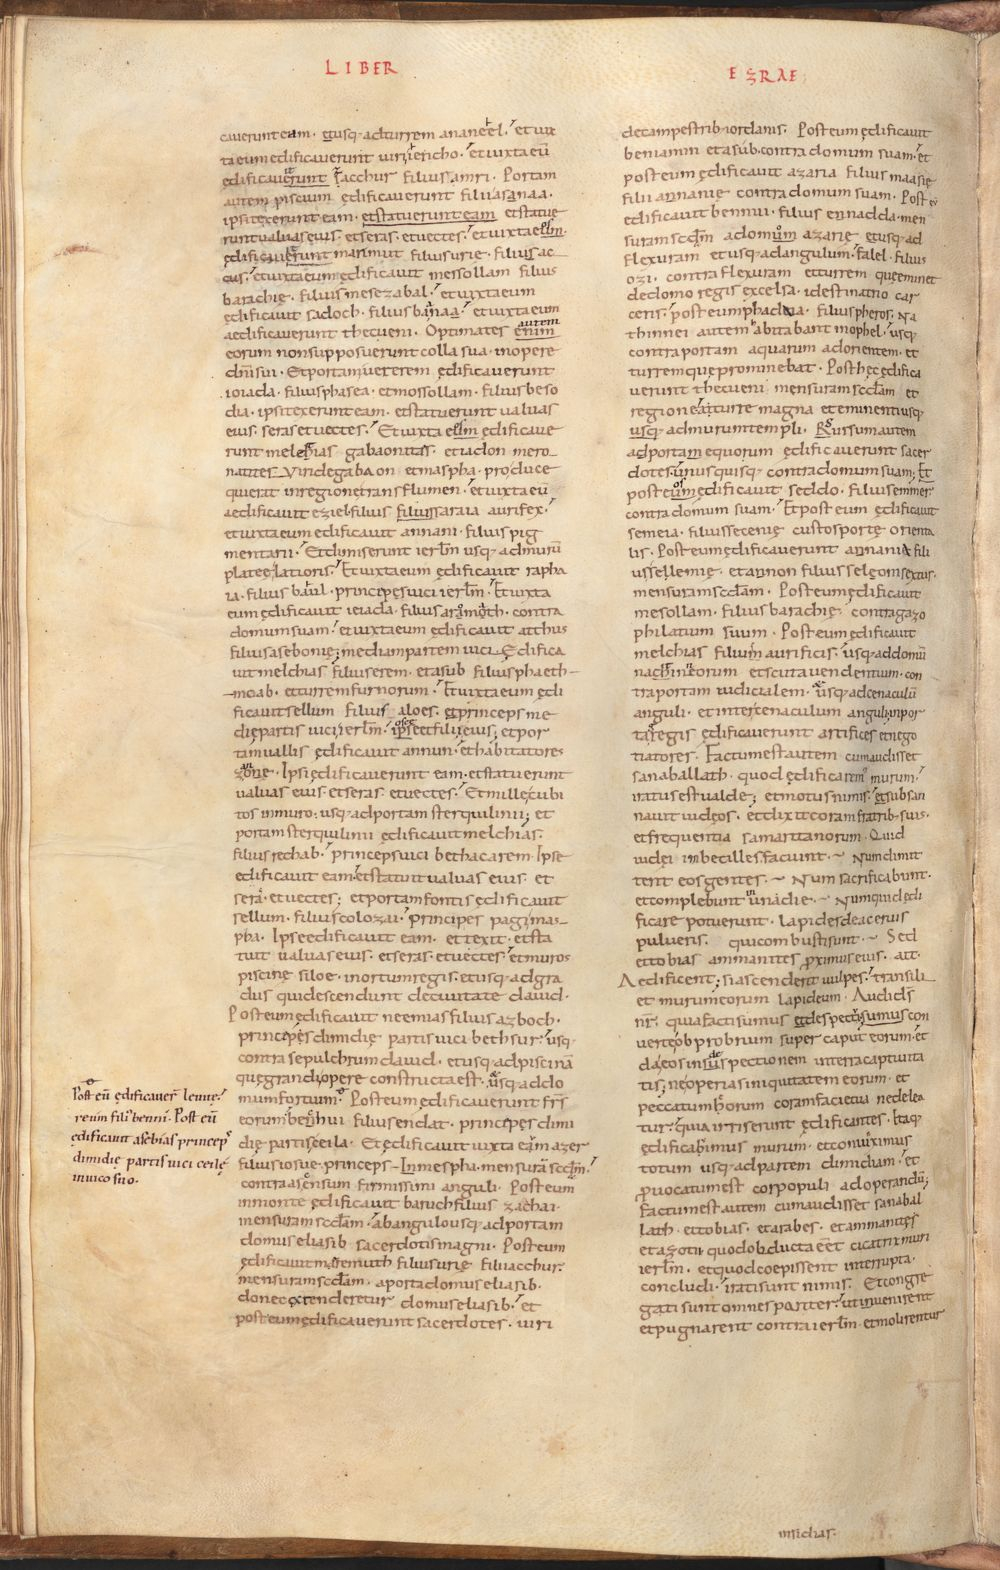 LIBER
EZRAE
caverunt eam. eusq; ad turrem ananeel. et iux
ta eum edificaverunt viri iericho. et iuxta eū
edificaverunt sacchur filius amri. Portam
autem piscium edificaverunt filii asanaa.
ipsi texerunt eam. et statuerunt eam et statue
runt valvas eius. et seras. et vectes. et iuxta
edificaverunt marimut filius urie. filius ac
cus. et iuxta eum edificavit mesollam filius
barachie. filius mesezabal. et iuxta eum
edificavit sadoch. filius banaa. et iuxta eum
aedificaverunt thecueni. Optimates enim autem
eorum non supposuerunt colla sua. in opere
dni sui. Et portam veterem edificaverunt
ioiada. filius phasea. et mossollam. filius beso
dia. ipsi texerunt eam. et statuerunt valvas
eius. seras et vectes. Et iuxta edificave
runt melchias gabaonitas. et iadon mero
natites. Viri de gabaon et maspha. pro duce
qui erat in regione trans flumen. et iuxta eū
aedificavit eziel filius filius saraia aurifex.
et iuxta eum edificavit annani. filius pig
mentarii. Et dimiserunt ierlm usq; ad murū
platee latioris. Et iuxta eum edificavit rapha
ia. filius baul. princeps vici ierlm. Et iuxta
eum edificavit ieiada. filius aromoth. contra
domum suam. et iuxta eum edificavit atthus
filius asebonie; mediam partem vici. Edifica
vit melchias filius erem. et asub filius phaeth
moab. et turrem furnorum. Et iuxta eum edi
ficavit sellum filius aloes. et princeps me
die partis vici ierlm. ipse et filii eius; et por
tam vallis edificavit annun. et habitatores
zone. Ipsi edificaverunt eam. et statuerunt
valvas eius. et seras. et vectes. Et mille cubi
tos in muro. usq; ad portam sterquilinii; et
portam sterquilinii edificavit melchias.
filius rechab. princeps vici bethacarem. Ipse
edificavit eam. et statuit valvas eius. et
sera. et vectes; et portam fontis edificavit
sellum. filius colozai. princeps pagi mas
pha. Ipse edificavit eam. et texit. et sta
tuit valvas eius. et seras. et vectes. et muros
piscine siloe. in ortum regis. et usq; ad gra
dus qui descendunt de civitate david.
Post eum edificavit neemias filius azboch.
princeps dimidie partis vici bethsur. usq;
contra sepulchrum david. et usq; ad piscinā
que grandi opere constructa est. usq; ad do
mum fortium. Post eum edificaverunt frs
eorum. benhui filius endat. princeps dimi
die partis ceila. Et edificavit iuxta eam azer
filius iosue. princeps in mespha. mensurā secdm.
contra asensum firmissimi anguli. Post eum
in monte edificavit baruch filius zachai.
mensuram secdam. ab angulo usq; ad portam
domus eliasib sacerdotis magni. Post eum
edificavit maremuth filius urie filii acchur.
mensuram secdam. a porta domus eliasib.
donec extenderetur domus eliasib. et
post eum edificaverunt sacerdotes. viri
Post eū edificaver levite.
reum filii benni. Post eū
edificavit asebias princeps
dimidie partis vici ceile
in vico suo.
de campestrib; iordanis. Post eum edificavit
beniamin et asub. contra domum suam. et
post eum edificavit azaria filius maasie
filii annanie contra domum suam. Post eū
edificavit bennui. filius ennadda. men
suram secdm a domum azarie et usq; ad
flexuram et usq; ad angulum. falel. filius
ozi. contra flexuram et turrem que eminet
de domo regis excelsa. id est in atrio car
ceris. post eum phadaia. filius pheros. Na
thinnei autem habitabant in ophel. usq;
contra portam aquarum ad orientem. et
turrem que prominebat. Post hec edifica
verunt thecueni mensuram secdam et
regione a turre magna et eminenti usq;
usq; ad murum templi. Rursum autem
ad portam equorum edificaverunt sacer
dotes. unusquisq; contra domum suam; Et
post eum edificavit seddo. filius emmer
contra domum suam. Et post eum edificavit
semeia. filius secenie custos porte orienta
lis. Post eum edificaverunt annania fili
us sellemie. et annon filius seleom sextus.
mensuram secdam. Post eum edificavit
mesollam. filius barachie contra gazo
philatium suum. Post eum edificavit
melchias filium aurificis. usq; ad domū
nathineorum et scruta vendentium. con
tra portam iudicialem. usq; ad cenaculū
anguli. et inter cenaculum anguli in por
ta regis edificaverunt artifices et nego
tiatores. Factum est autem cum audisset
sanaballath. quod edificarem murum.
iratus est valde; et motus nimis. et subsan
navit iudeos. et dixit coram fratrib; suis.
et frequentia samaritanorum. Quid
iudei inbecilles faciunt. Num dimit
tent eos gentes. Num sacrificabunt.
et complebunt in una die. Numquid edi
ficare potuerunt. lapides de acervis
pulveris. qui combusti sunt. Sed
et tobias ammanites proximus eius. ait.
Aedificent; si ascenderit vulpes. transili
et murum eorum lapideum. Audi ds
nr. quia facti sumus et despecti sumus con
verte obprobrium super caput eorum. et
da eos in suspectionem in terra captivita
tis; ne operias iniquitatem eorum. et
peccatum horum coram facie tua ne delea
tur. quia irriserunt edificantes. Itaq;
edificabimus murum. et coniunximus
totum usq; ad partem dimidiam. et
provocatum est cor populi ad operandū;
Factum est autem cum audisset sanabal
lath. et tobias. et arabes. et ammanites
et azotii quod obducta eet cicatrix muri
ierlm. et quod coepissent interrupta.
concludi. irati sunt nimis. Et congre
gati sunt omnes pariter. ut invenirent
et pugnarent contra ierlm. et molirentur
insidias.